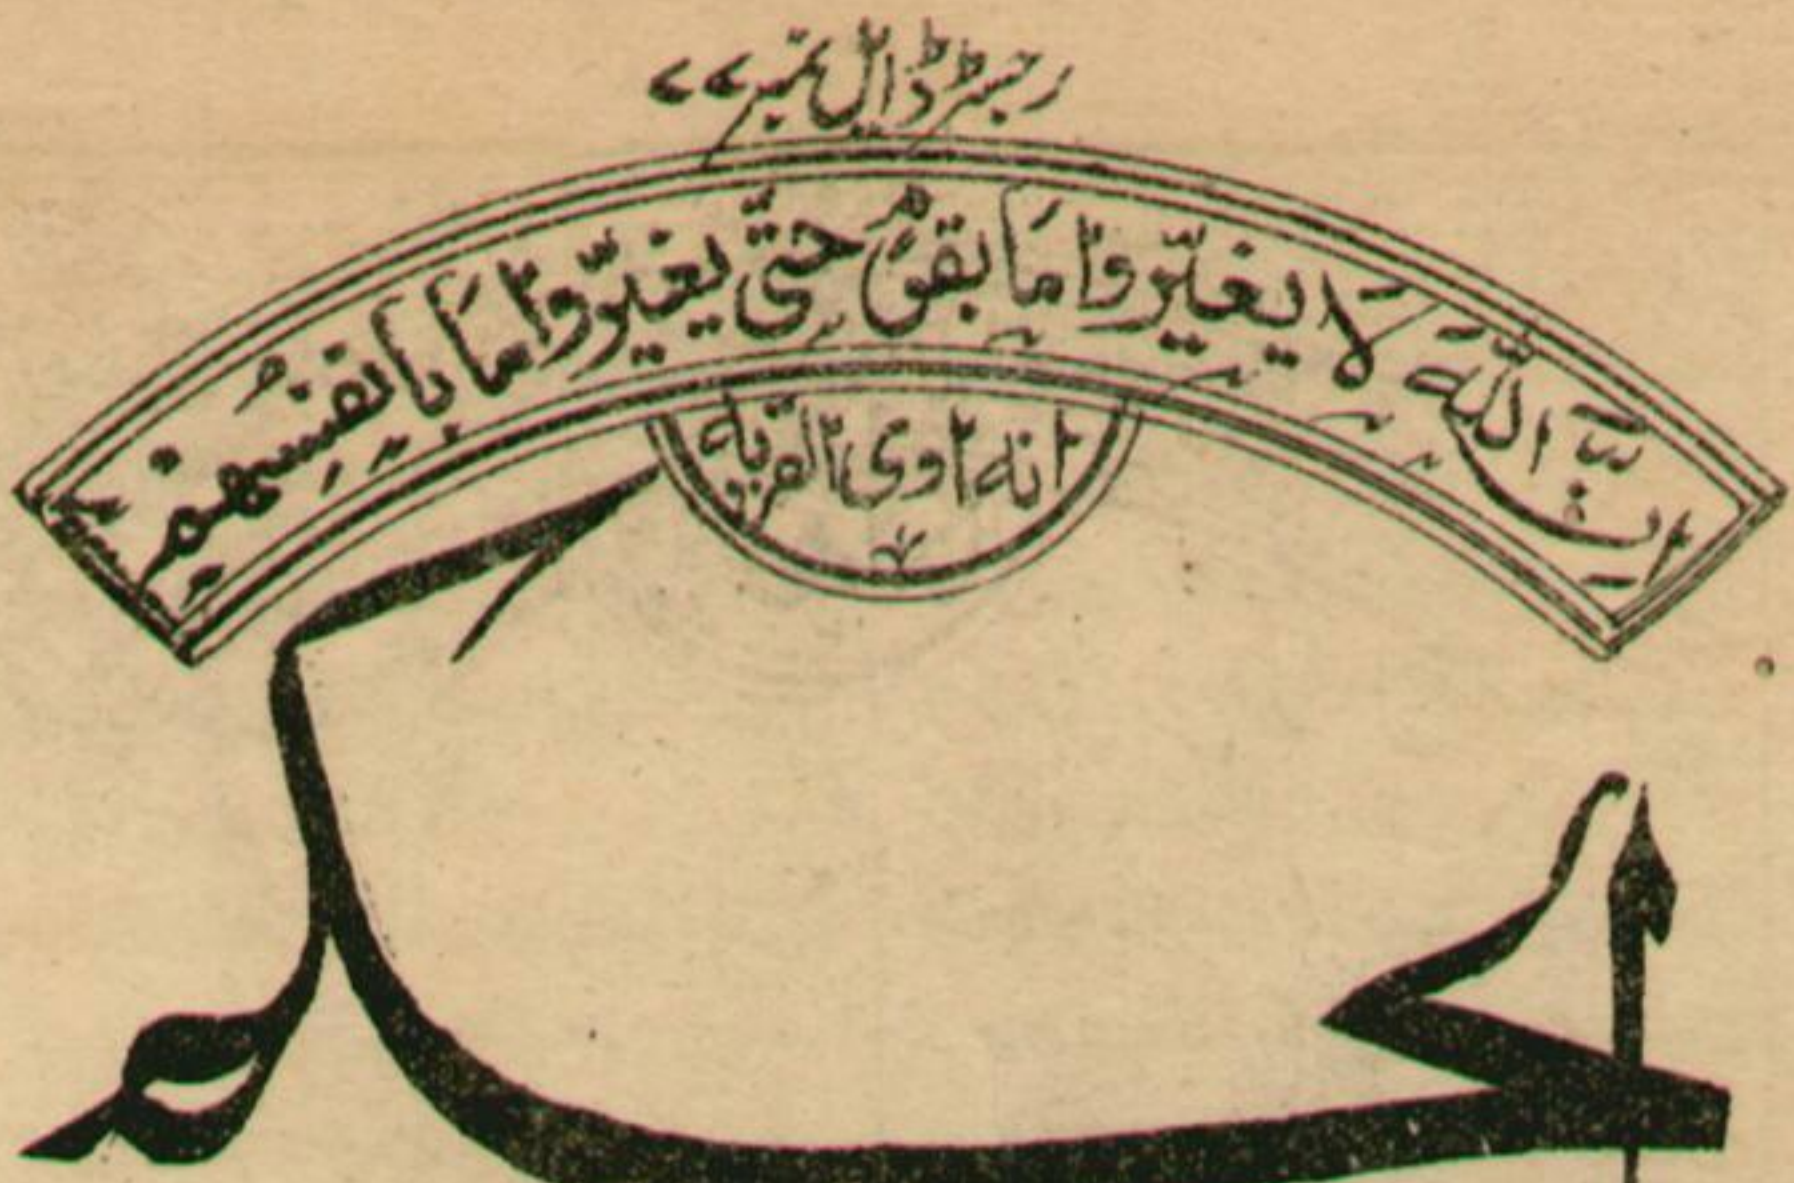 رجسٹرڈ ایل نمبر ۷۷
اِنَّ اللّٰهَ لَا یُغَیِّرُوْا مَا بِقَوْمٍ حَتّٰی یُغَیِّرُوْا مَا بِاَنْفُسِهِمْ
انه اوی القریه
الحکم